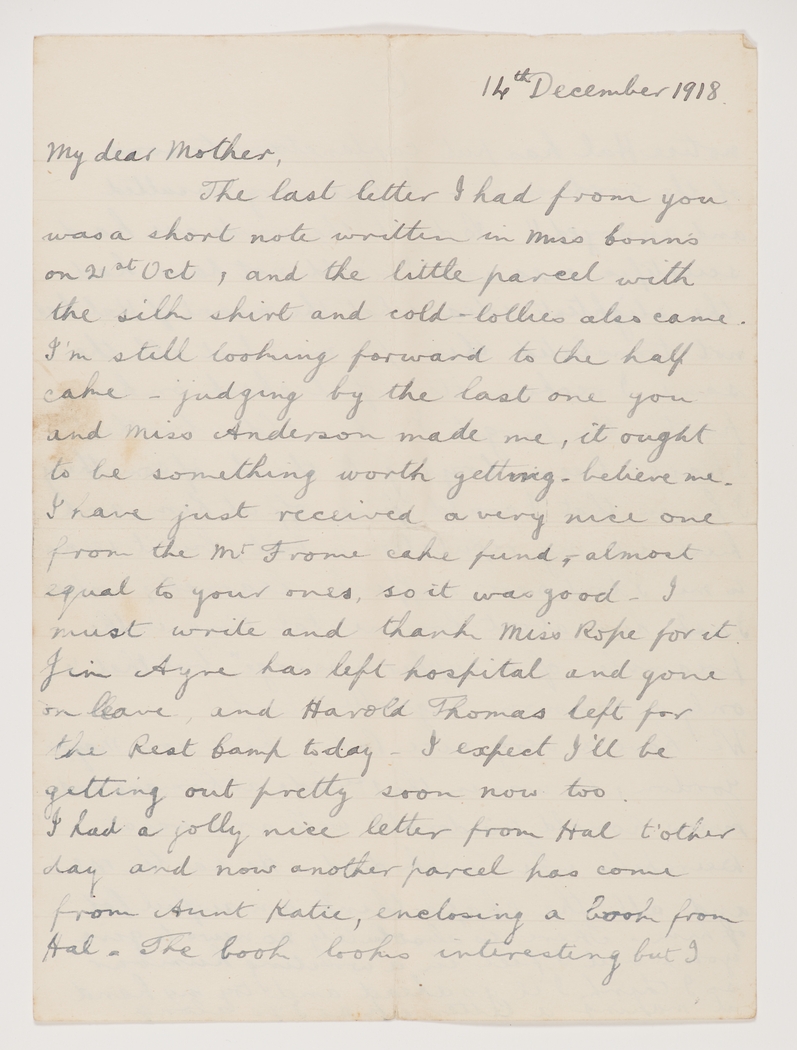 14th December 1918.
My dear Mother,
The last letter I had from you
was a short note written in Miss Conn's
on 21st Oct, and the little parcel with
the silk shirt and cold-lollies also came.
I'm still looking forward to the half
cake - judging by the last one you
and Miss Anderson made me, it ought
to be something worth getting - believe me.
I have just received a very nice one
from the Mt Frome cake fund, - almost
equal to your ones, so it was good - I
must write and thank Miss Rope for it.
Jim Ayre has left hospital and gone
on leave, and Harold Thomas left for
the Rest Camp today - I expect I'll be
getting out pretty soon now too.
I had a jolly nice letter from Hal t'other
day and now another parcel has come
from Aunt Katie, enclosing a book from
Hal. The book looks interesting but I